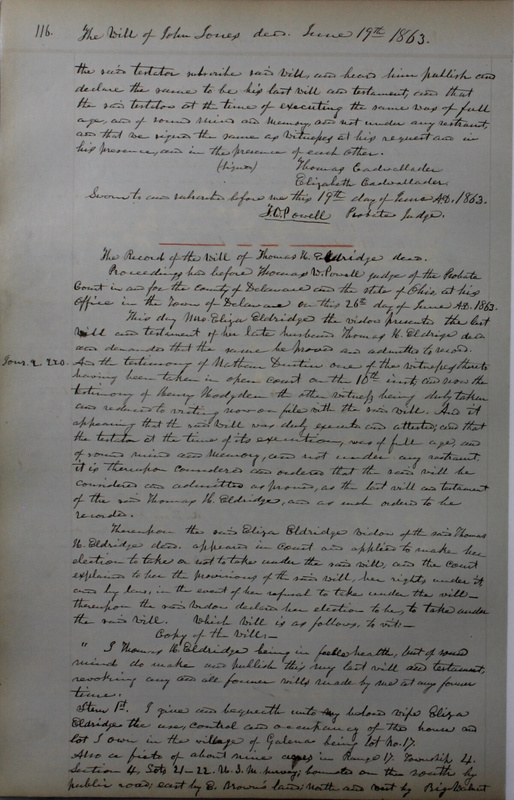 116. The Will of John Jones decd. June 19th 1863.
the said testator subscribe said will, and heard him publish and
declare the same to be his last will and testament, and that
the said testator at the time of executing the same was of full
age, and of sound mind and memory, and not under any restraint,
and that we signed the same as witnesses at his request and in
his presence, and in the presence of each other.
(signed) Thomas Cadwallader
Elizabeth Cadwallader
Sworn to and subscribed before me this 19th day of June A.D. 1863.
T.W. Powell Probate Judge.
The Record of the Will of Thomas H. Eldridge decd.
Proceedings had before Thomas W. Powell judge of the Probate
Court in and for the County of Delaware and the state of Ohio, at his
Office in the town of Delaware on this 26th day of June A.D. 1863.
This day Mrs. Eliza Eldridge the widow presents the last
will and testament of her late husband Thomas H. Eldridge decd
and demanded that the same be proved and admitted to record.
Jour. 2. 220. And the testimony of Nathan Dustin one of the witnesses thereto
having been taken in open court on the 10th inst; and now the
testimony of Henry Hodgden the other witness being duly taken
and reduced to writing now on file with the said will. And it
appearing that the said will was duly executed and attested; and that
the testator at the time of its execution, was of full age, and
of sound mind and memory, and not under any restraint,
it is thereupon considered and ordered that the said will be
considered and admitted as proved, as the last will and testament
of the said Thomas H. Eldridge, and as such ordered to be
recorded.
Thereupon the said Eliza Eldridge widow of the said Thomas
H. Eldridge decd. appeared in Court and applied to make her
election to take or not to take under the said will, and the court
explained to her the provisions of the said will, her rights under it
and by law, in the event of her refusal to take under the will—
thereupon the said widow declared her election to be, to take under
the said will. Which will is as follows, to wit:—
Copy of the Will:—
" I Thomas H. Eldridge being in feeble health, but of sound
mind do make and publish this my last will and testament,
revoking any and all former wills made by me at any former
time.
Item 1st. I give and bequeath unto my beloved wife Eliza
Eldridge the use, control and occupancy of the house and
lot I own in the village of Galena being lot No. 17.
Also a piece of about nine acres in Range 17. Township 4.
Section 4, Lots 21–22. U.S.M. survey; bounded on the south by
public road; east by E. Brown's land; north and west by Big Walnut